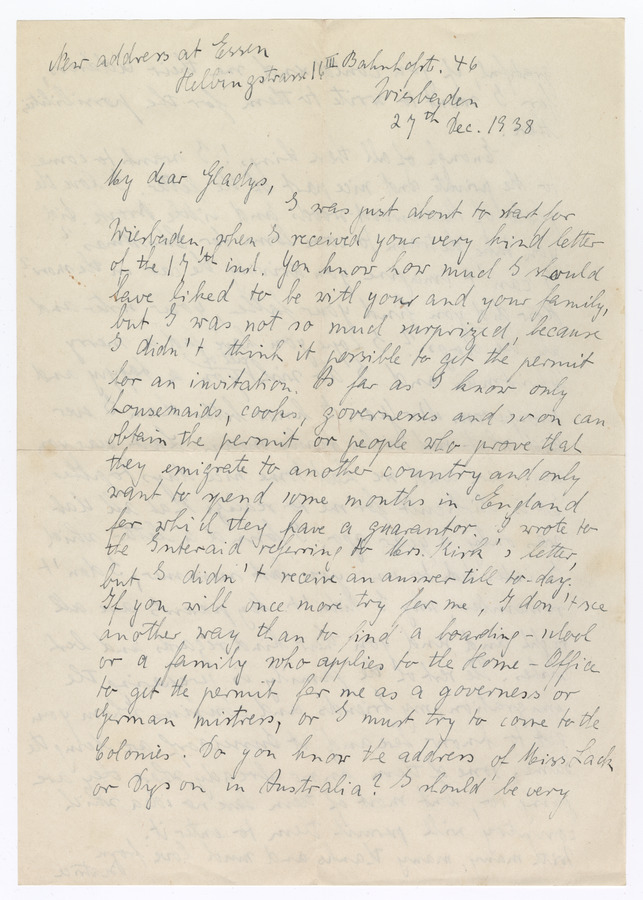 New address at Essen
Helbingstrasse 16 III Bahnhofstr. 46
Wiesbaden
27th Dec. 1938
My dear Gladys,
I was just about to start for
Wiesbaden, when I received your very kind letter
of the 17th inst. You know how much I should
have liked to be with your and your family,
but I was not so much surprized, because
I didn't think it possible to get the permit
for an invitation. As far as I know only
housemaids, cooks, governesses and so on can
obtain the permit or people who prove that
they emigrate to another country and only
want to spend some months in England
for which they have a guarantor. I wrote to
the Interaid referring to Mrs. Kirk's letter,
but I didn't receive an answer till to-day.
If you will once more try for me, I don't see
another way than to find a boarding-school
or a family who applies to the Home-Office
to get the permit for me as a governess or
German mistress, or I must try to come to the
Colonies. Do you know the address of Miss Lack
or Dyson in Australia? I should be very